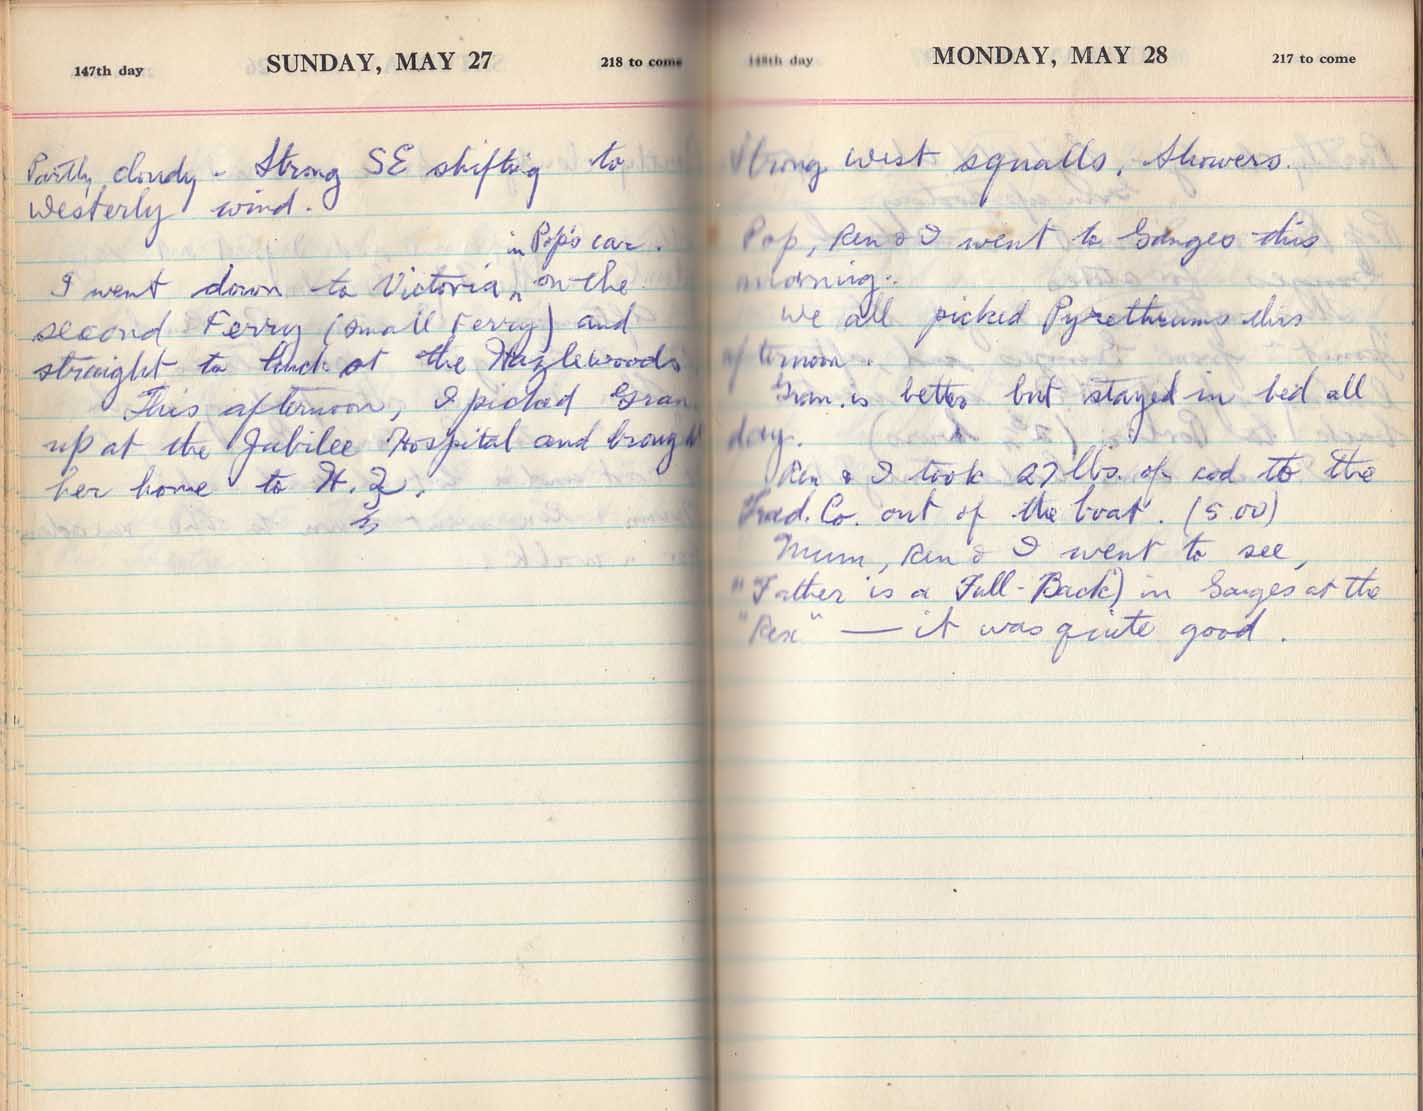 147th day SUNDAY, MAY 27 218 to come
Partly cloudy - Strong SE shifting to
Westerly wind.
in Pop's car.
I went down to Victoria ^ on the
second Ferry (small Ferry) and
straight to lunch at the Hazlewoods
This afternoon, I picked Gran
up at the Jubilee Hospital and brought
her home to H.
148th day MONDAY, MAY 28 217 to come
Strong west squalls, Showers.
Pop, Ren & I went to Ganges this
morning.
We all picked Pyrethrums this
afternoon.
Gran. is better but stayed in bed all
day.
Ren & I took 27 lbs. of cod to the
Trad. Co. out of the boat. (5.00)
Mum, Ren & I went to see,
"Father is a Full-Back) in Ganges at the
"Rex" — it was quite good.